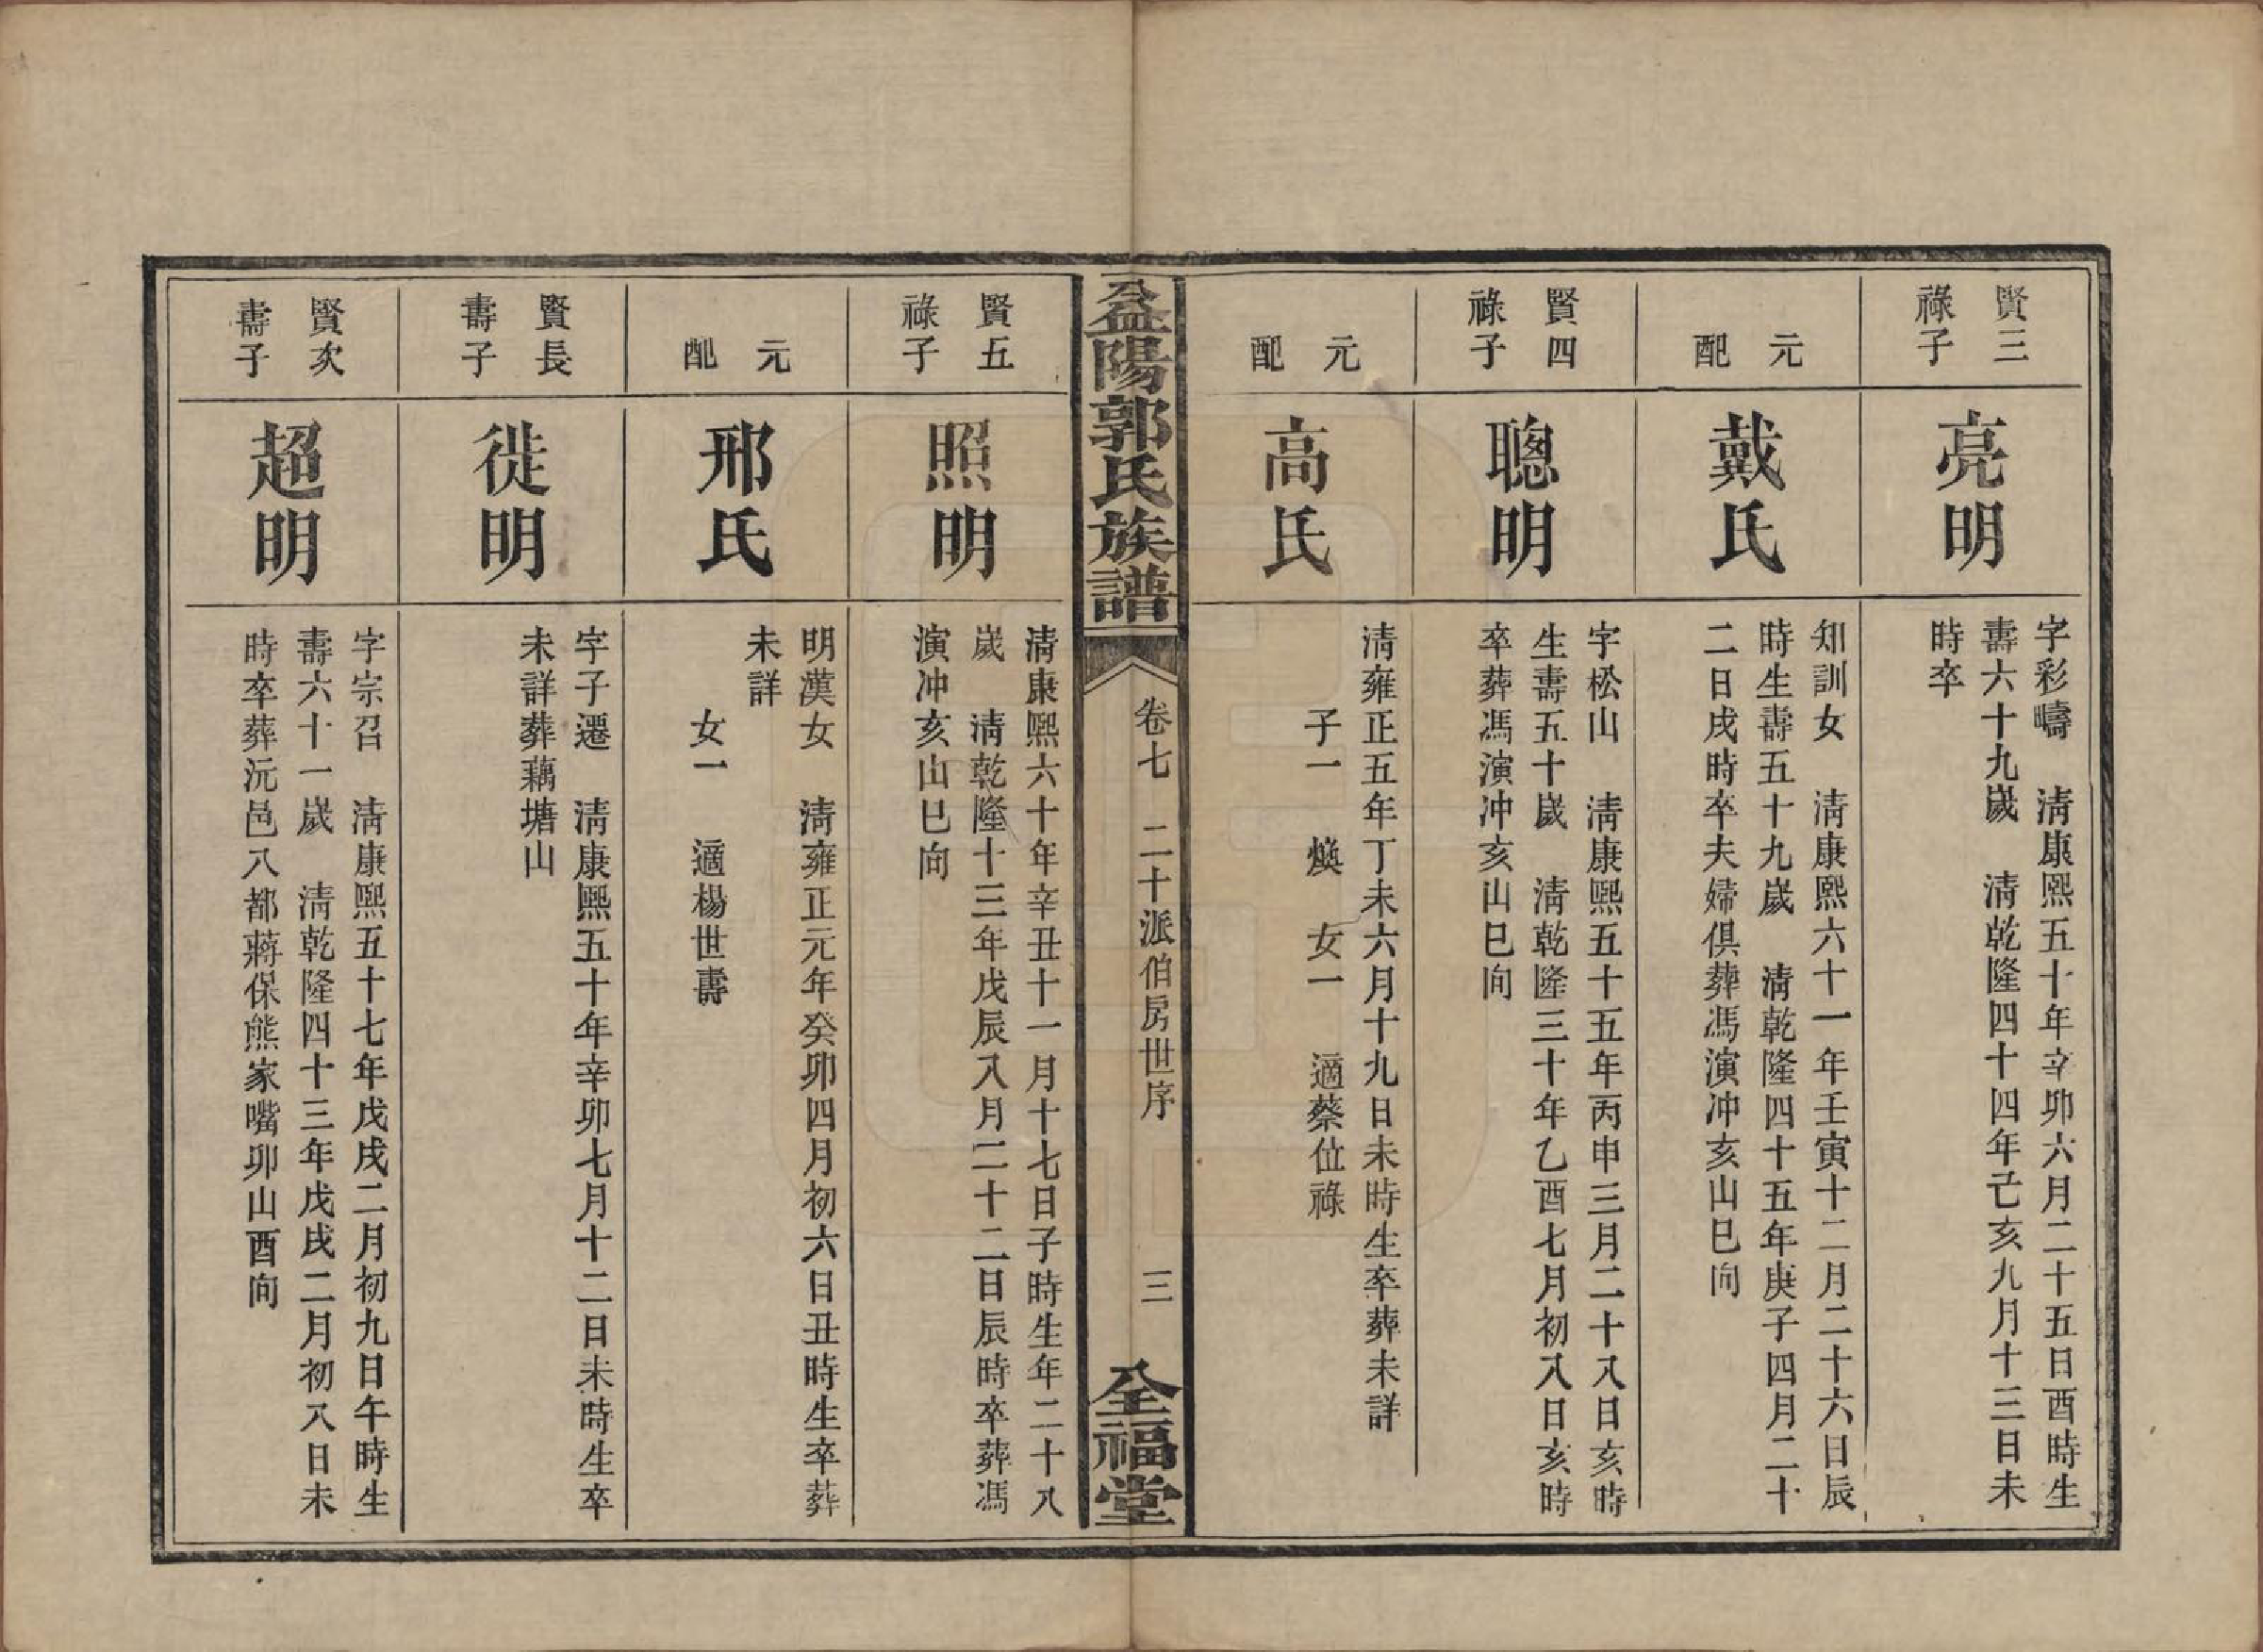 賢三
祿子
亮明
字彩疇　清康熙五十年辛卯六月二十五日酉時生
壽六十九歲　清乾隆四十四年己亥九月十三日未
時卒
元
配
戴氏
知訓女　清康熙六十一年壬寅十二月二十六日辰
時生壽五十九歲　清乾隆四十五年庚子四月二十
二日戌時卒夫婦俱葬馮演冲亥山巳向
賢四
祿子
聰明
字松山　清康熙五十五年丙申三月二十八日亥時
生壽五十歲　清乾隆三十年乙酉七月初八日亥時
卒葬馮演冲亥山巳向
元
配
高氏
清雍正五年丁未六月十九日未時生卒葬未詳
子一　煥　女一　適蔡位祿
益陽郭氏族譜
卷七　二十派伯房世序　三
全福堂
賢五
祿子
照明
清康熙六十年辛丑十一月十七日子時生年二十八
歲　清乾隆十三年戊辰八月二十二日辰時卒葬馮
演冲亥山巳向
元
配
邢氏
明漢女　清雍正元年癸卯四月初六日丑時生卒葬
未詳
女一　適楊世壽
賢長
壽子
徙明
字子遷　清康熙五十年辛卯七月十二日未時生卒
未詳葬藕塘山
賢次
壽子
超明
字宗召　清康熙五十七年戊戌二月初九日午時生
壽六十一歲　清乾隆四十三年戊戌二月初八日未
時卒葬沅邑八都蔣保熊家嘴卯山酉向